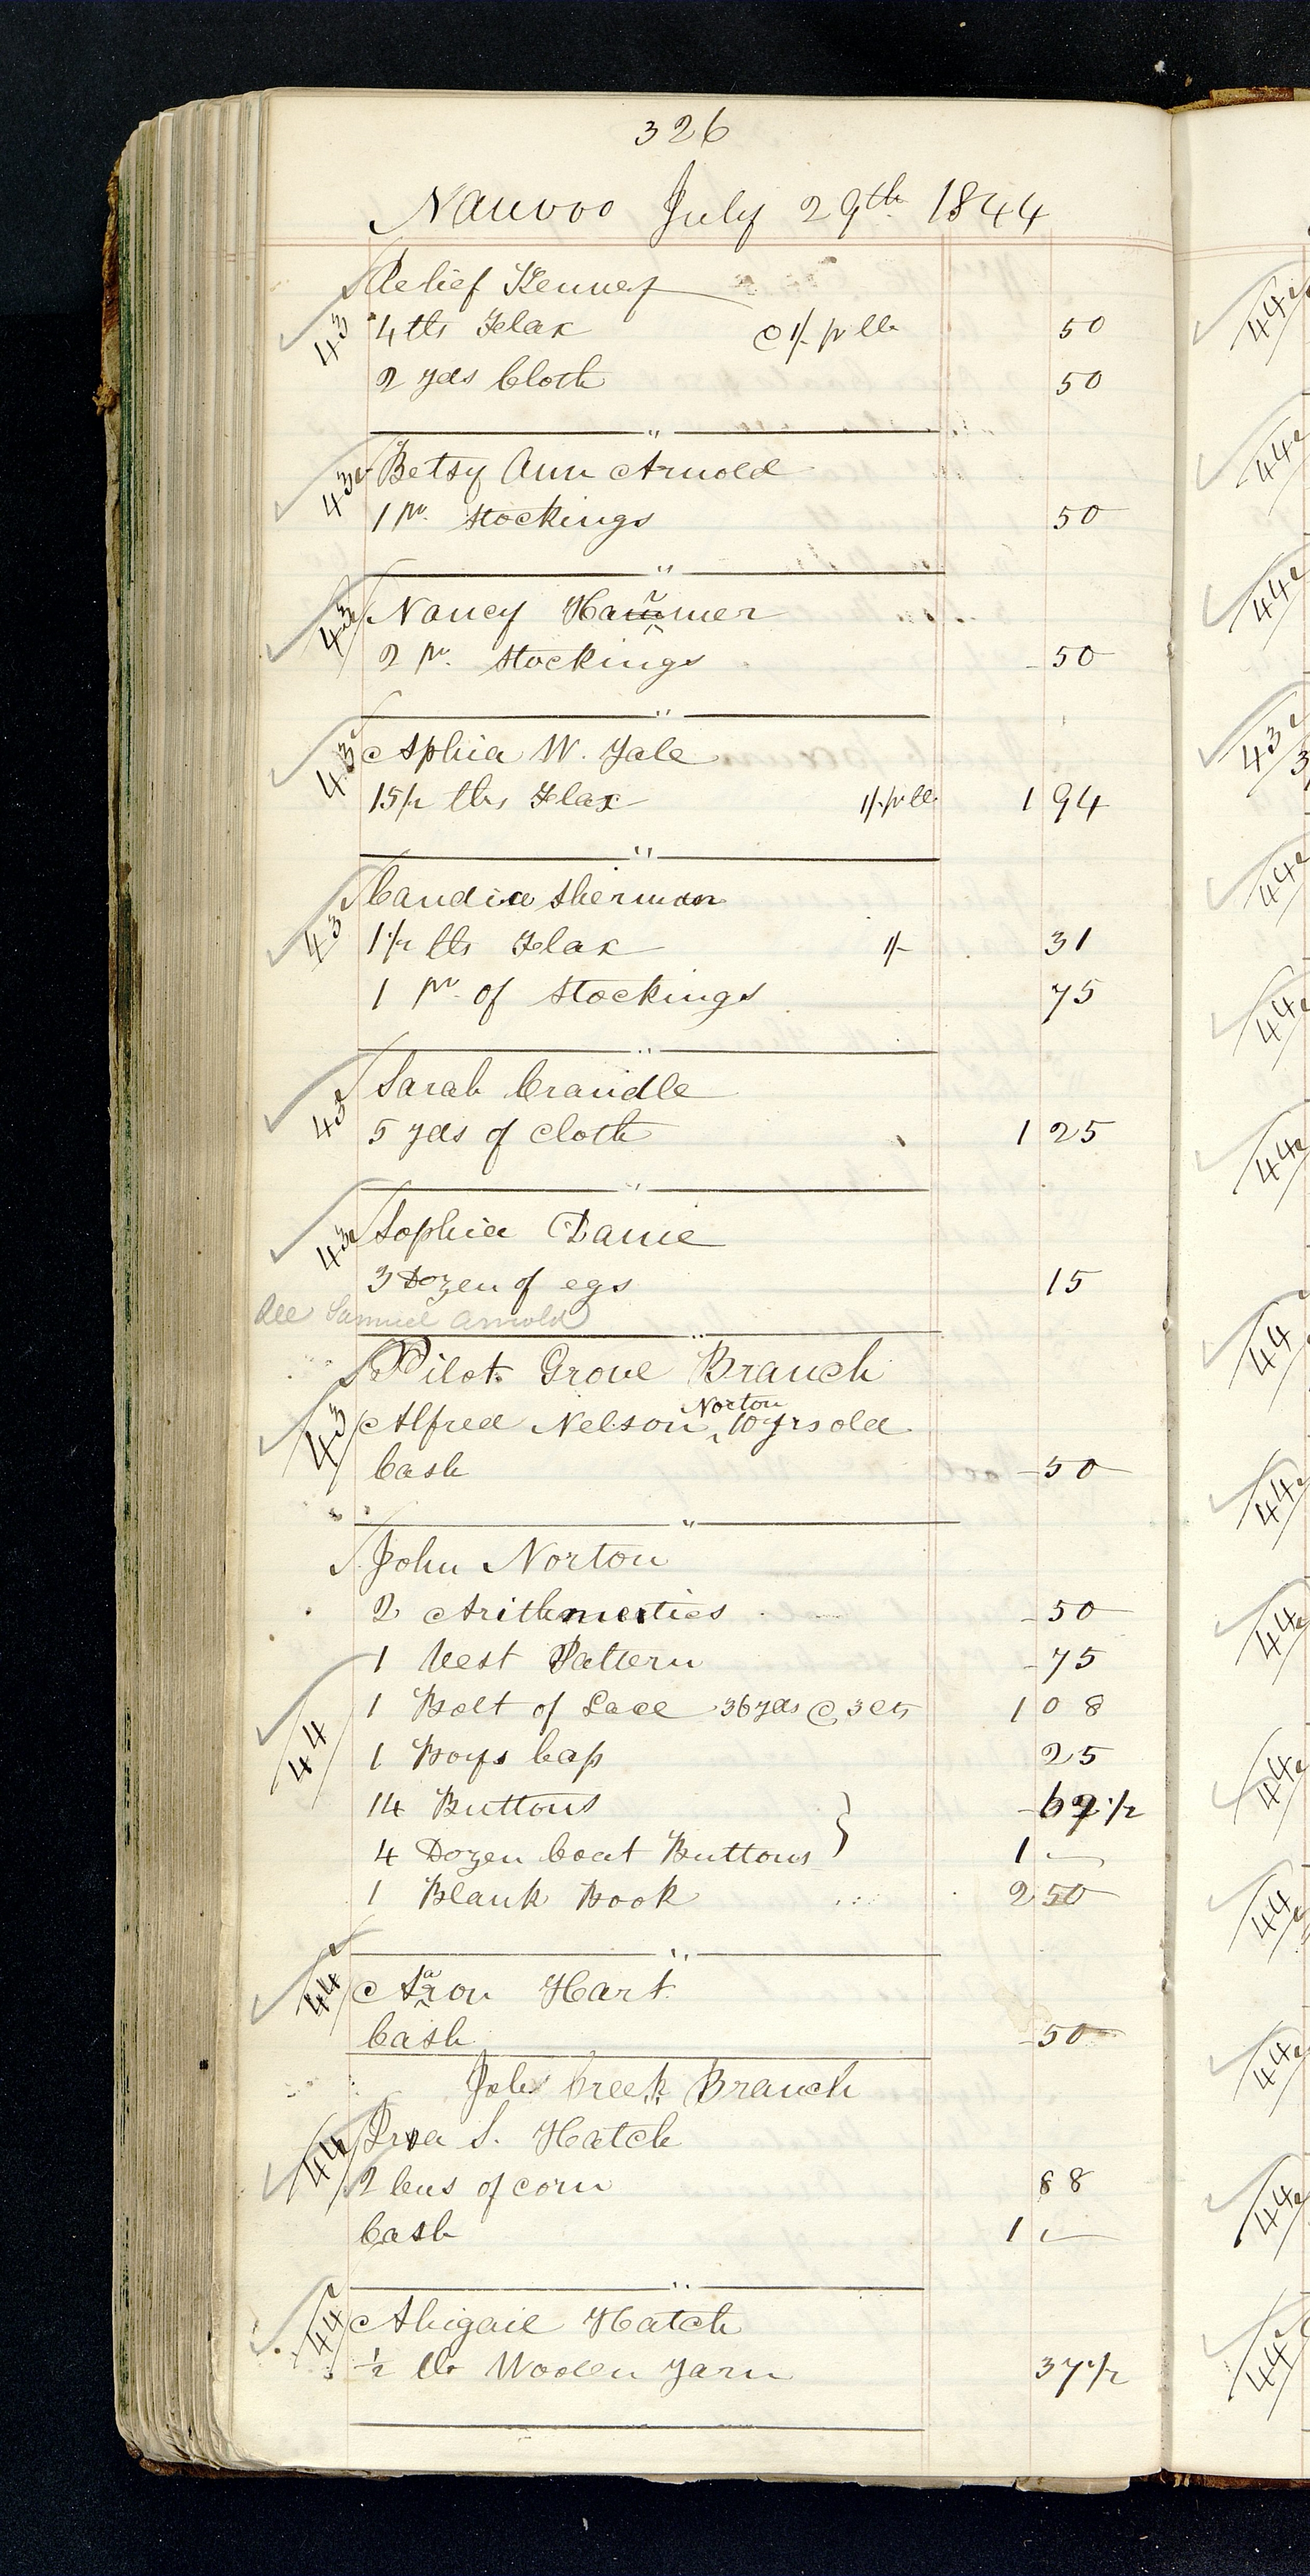 326
Nauvoo July 29th 1844
43 Relief Kenney
4 lbs Flax @ 1/- pr lb 50
2 yds Cloth 50
"
43 Betsy Ann Arnold
1 pr. Stockings 50
"
43 Nancy
2 pr. Stockings 50
"
43 Aphia W. Yale
15 1/2 lbs Flax 1/- pr lb 1 94
"
43 Candia Sherman
1 1/2 lbs Flax 1/- 31
1 pr. of Stockings 75
"
43 Sarah Crandle
5 yds of Cloth 1 25
"
43 Sophia
3 Dozen of egs 15
See Samuel Arnold
"
Pilot Grove Branch
Norton
43 Alfred Nelson ^ 10 yrs old
Cash 50
"
John Norton
2 Arithmetics 50
1 Vest Pattern 75
1 Bolt of Lace 36 yds @ 3 cts 1 08
44 1 Boys Cap 25
14 Buttons 1/2
4 Dozen Coat Buttons } 1 —
1 Blank Book 2 50
"
44 Aaron Hart
Cash 50
Jobs Creek Branch
44 Ira S. Hatch
2 bus of corn 88
Cash 1 —
"
44 Abigail Hatch
1/2 lb Woolen Yarn 37 1/2
44
44
44
43
44
44
44
44
44
44
44
44
44
44
44